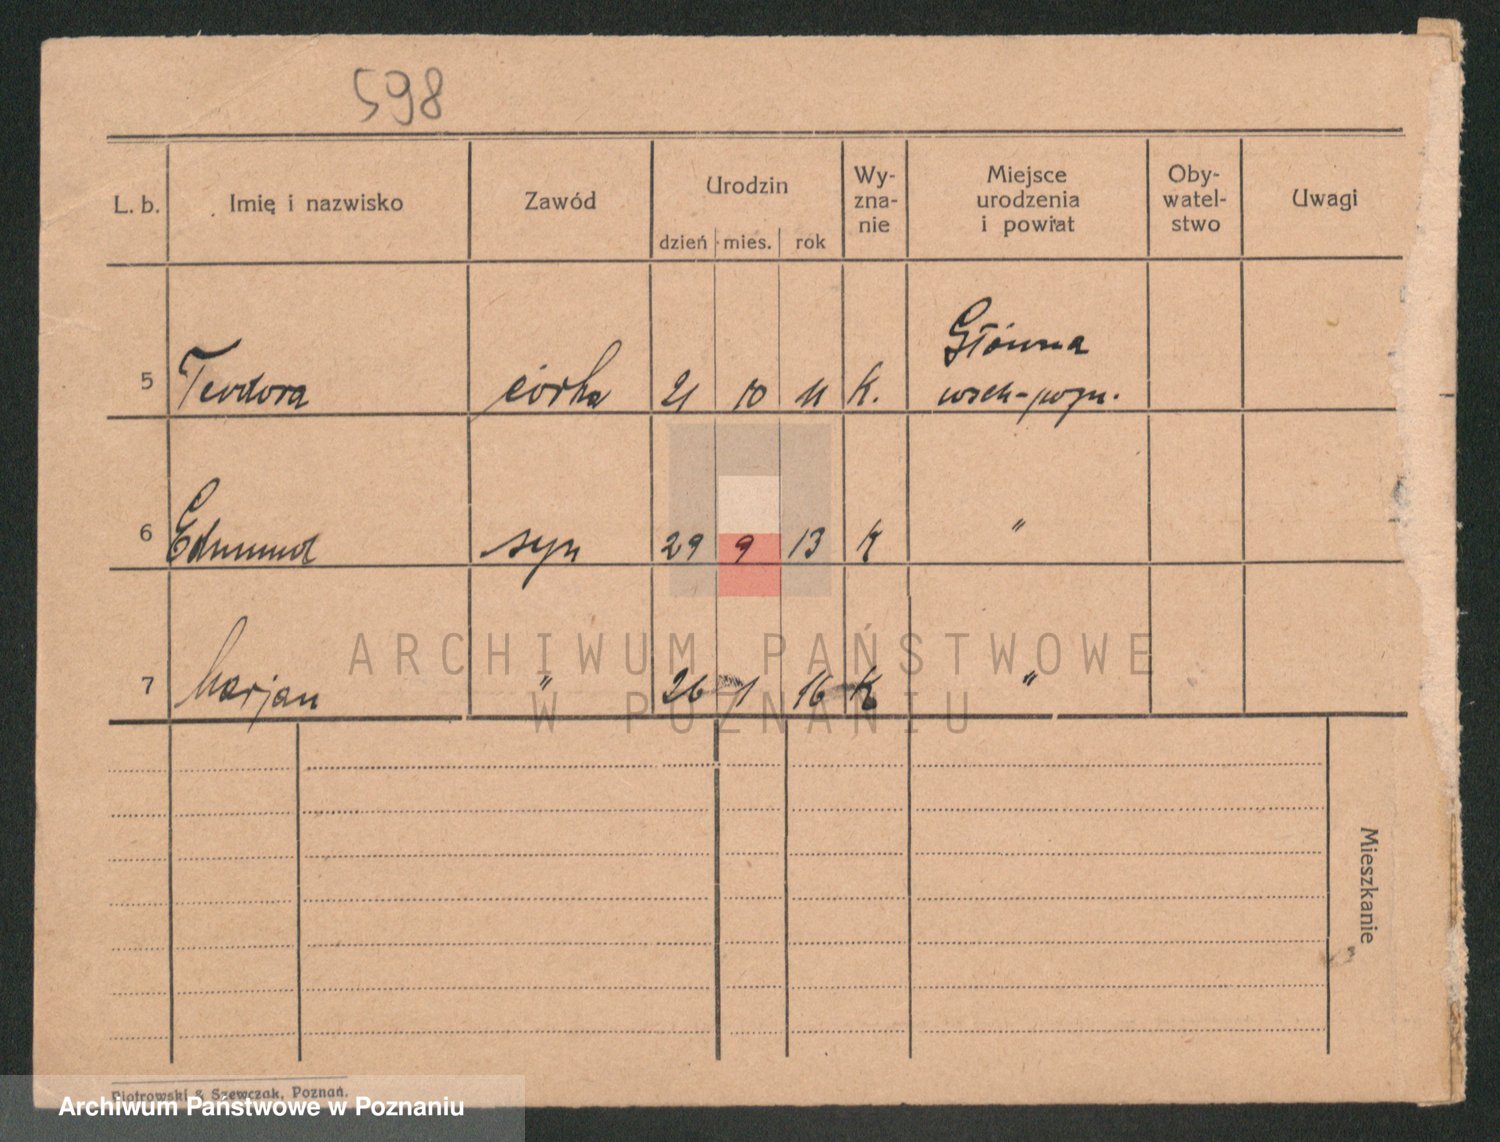 598
L. b. Imię i nazwisko Zawód Urodzin Wy-zna-nie Miejsce urodzenia i powiat Oby-watel-stwo Uwagi
dzień mies. rok
Główna
5 Teodora córka 21 10 11 K. wsch-pozn.
6 Edmund syn 29 9 13 K "
7 Marjan " 26 1 16 K "
ARCHIWUM PAŃSTWOWE
W POZNANIU
Mieszkanie
Piotrowski & Szewczak, Poznań.
Archiwum Państwowe w Poznaniu